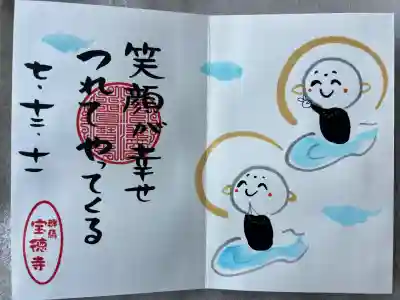 笑顔が幸せ
つれてやってくる
七、十三、十一
宝徳寺